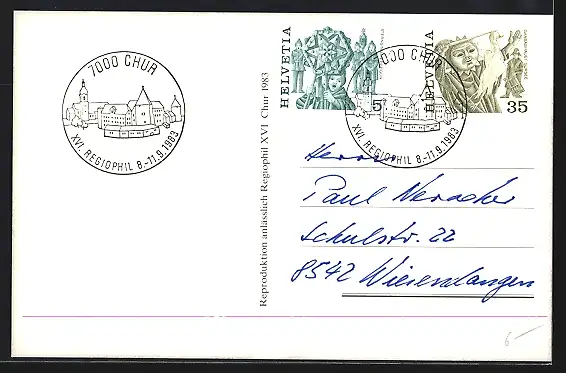 7000 CHUR
XVI. REGIOPHIL 8.-11.9.1983
HELVETIA
5
HELVETIA
35
7000 CHUR
XVI. REGIOPHIL 8.-11.9.1983
Reproduktion anlässlich Regiophil XVI Chur 1983
Herrn
Paul Neracher
Schulstr. 22
8542 Wiesendangen
6.-